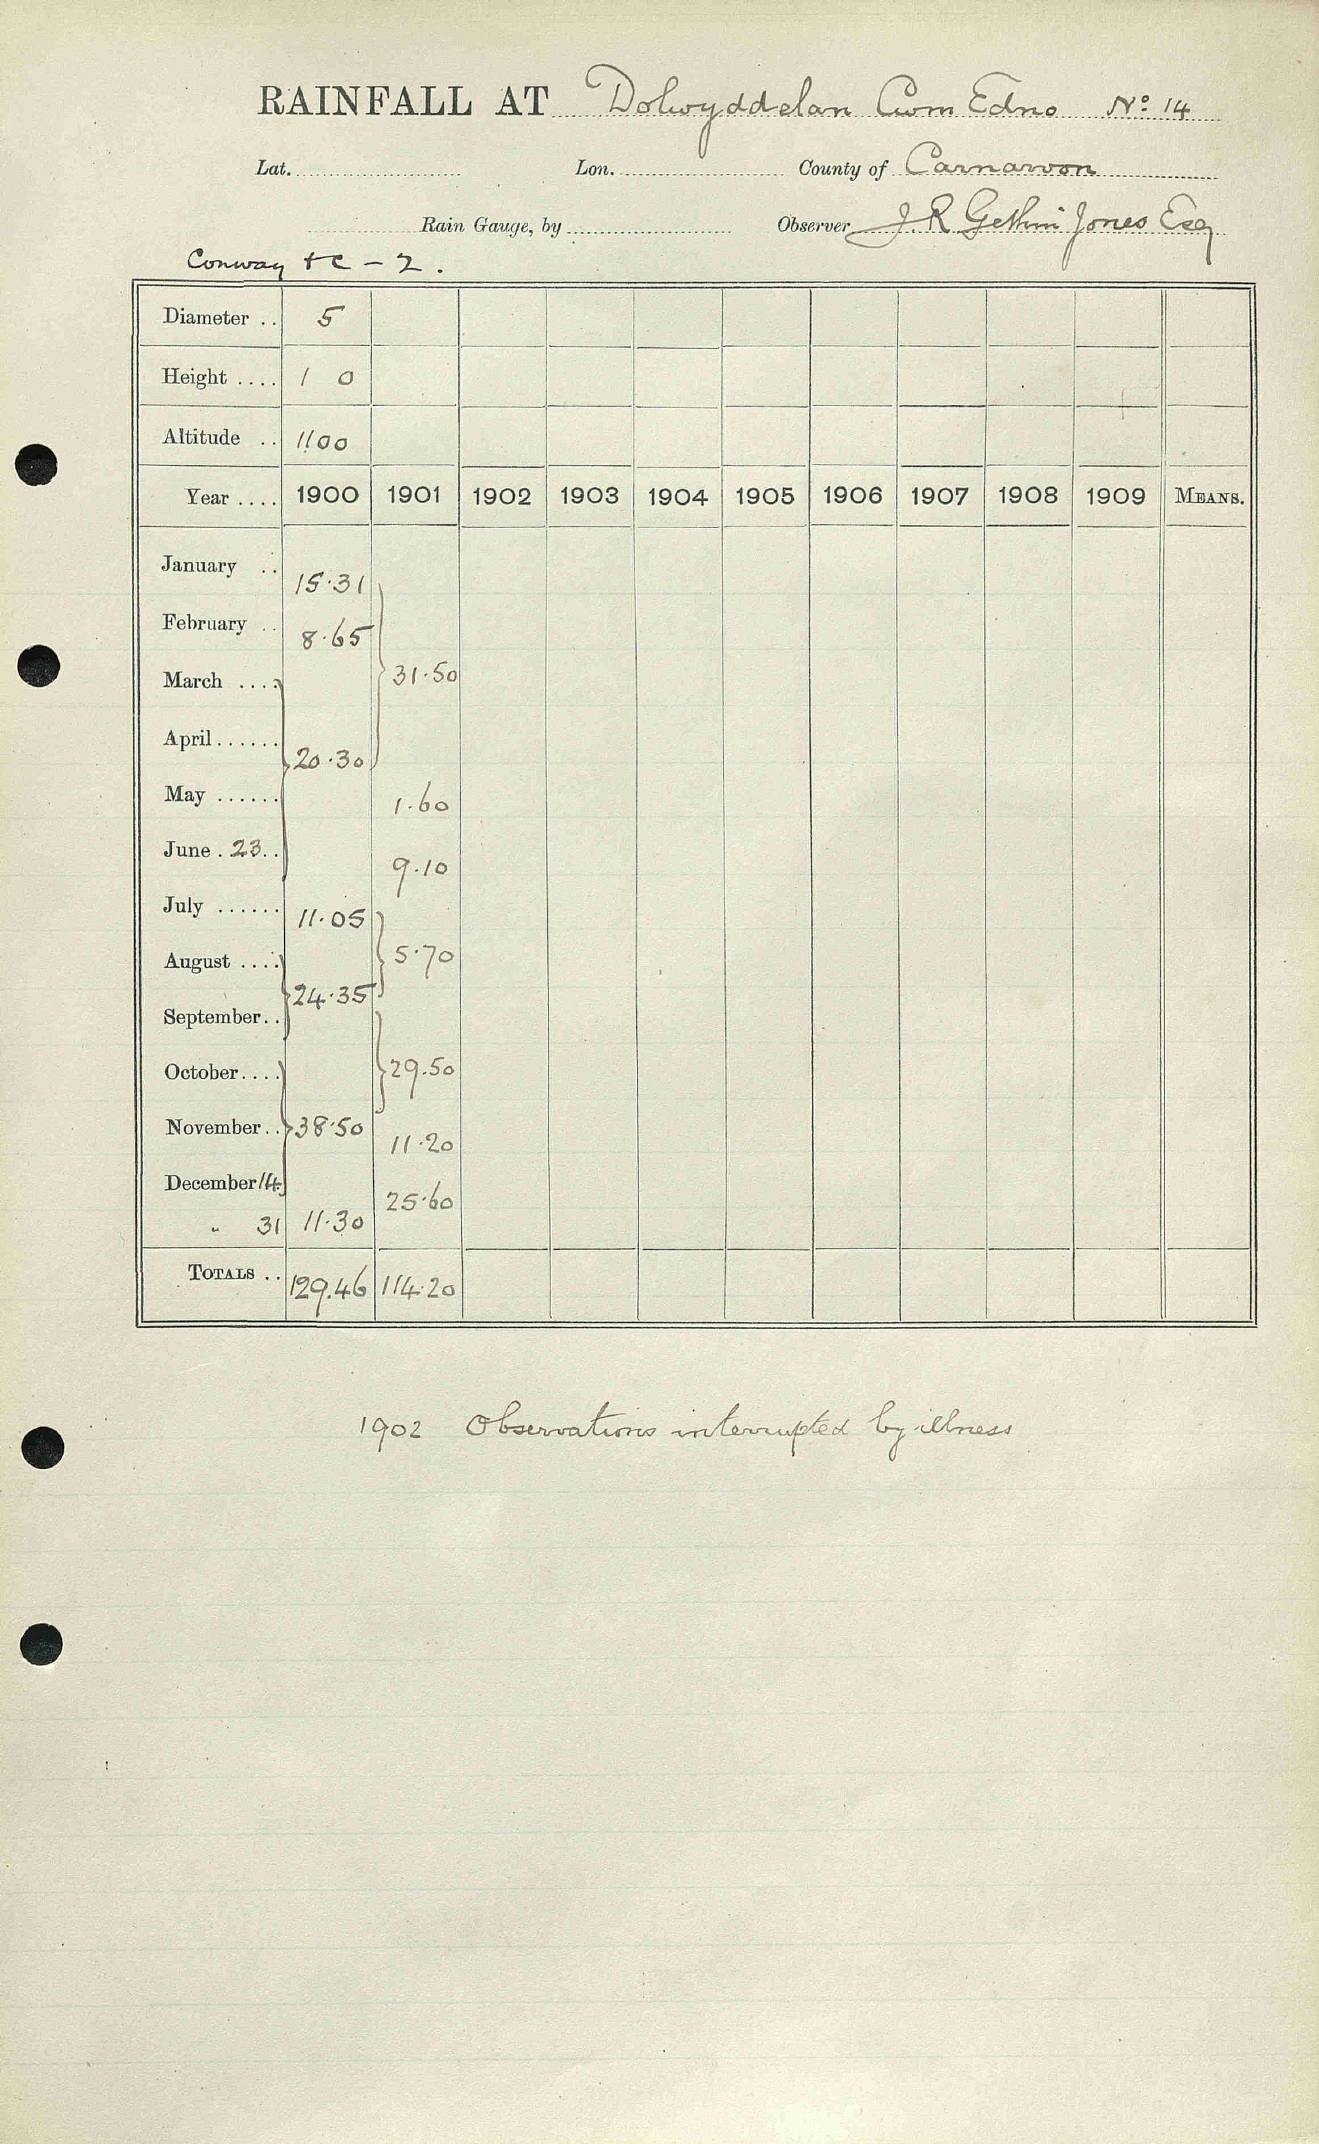 RAINFALL AT Dolwyddelan Cwm Edno No. 14
Lat. Lon. County of Carnarvon
Rain Gauge, by Observer J. R. Gethin Jones Esq
Conway &c - 2.
Diameter .. 5
Height .... 1 0
Altitude .. 1100
Year .... 1900 1901 1902 1903 1904 1905 1906 1907 1908 1909 MEANS.
January .. 15.31
February .. 8.65
March .... 31.50
April...... 20.30
May ...... 1.60
June . 23. . 9.10
July ...... 11.05
August .... 5.70
September.. 24.35
October.... 29.50
November.. 38.50 11.20
December 14 25.60
" 31 11.30
TOTALS .. 129.46 114.20
1902 Observations interrupted by illness